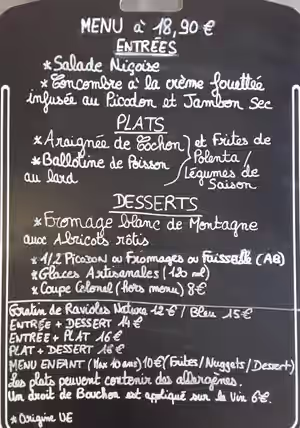 MENU à 18,90 €
ENTRÉES
* Salade Niçoise
* Concombre à la crème fouettée
infusée au Picodon et Jambon Sec
PLATS
* Araignée de Cochon } et Frites de
* Ballotine de Poisson Polenta /
au lard Légumes de
Saison
DESSERTS
* Fromage blanc de Montagne
aux Abricots rôtis
* 1/2 PICODON ou Fromages ou Faisselle (AB)
* Glaces Artisanales (120 ml)
* Coupe Colonel (hors menu) 8€
Gratin de Ravioles Nature 12 € / Bleu 15€
ENTRÉE + DESSERT 14 €
ENTRÉE + PLAT 16 €
PLAT + DESSERT 16 €
MENU ENFANT (Max 10 ans) 10€ (Frites / Nuggets / Dessert)
Les plats peuvent contenir des allergènes.
Un droit de Bouchon est appliqué sur le Vin 6€.
* Origine UE